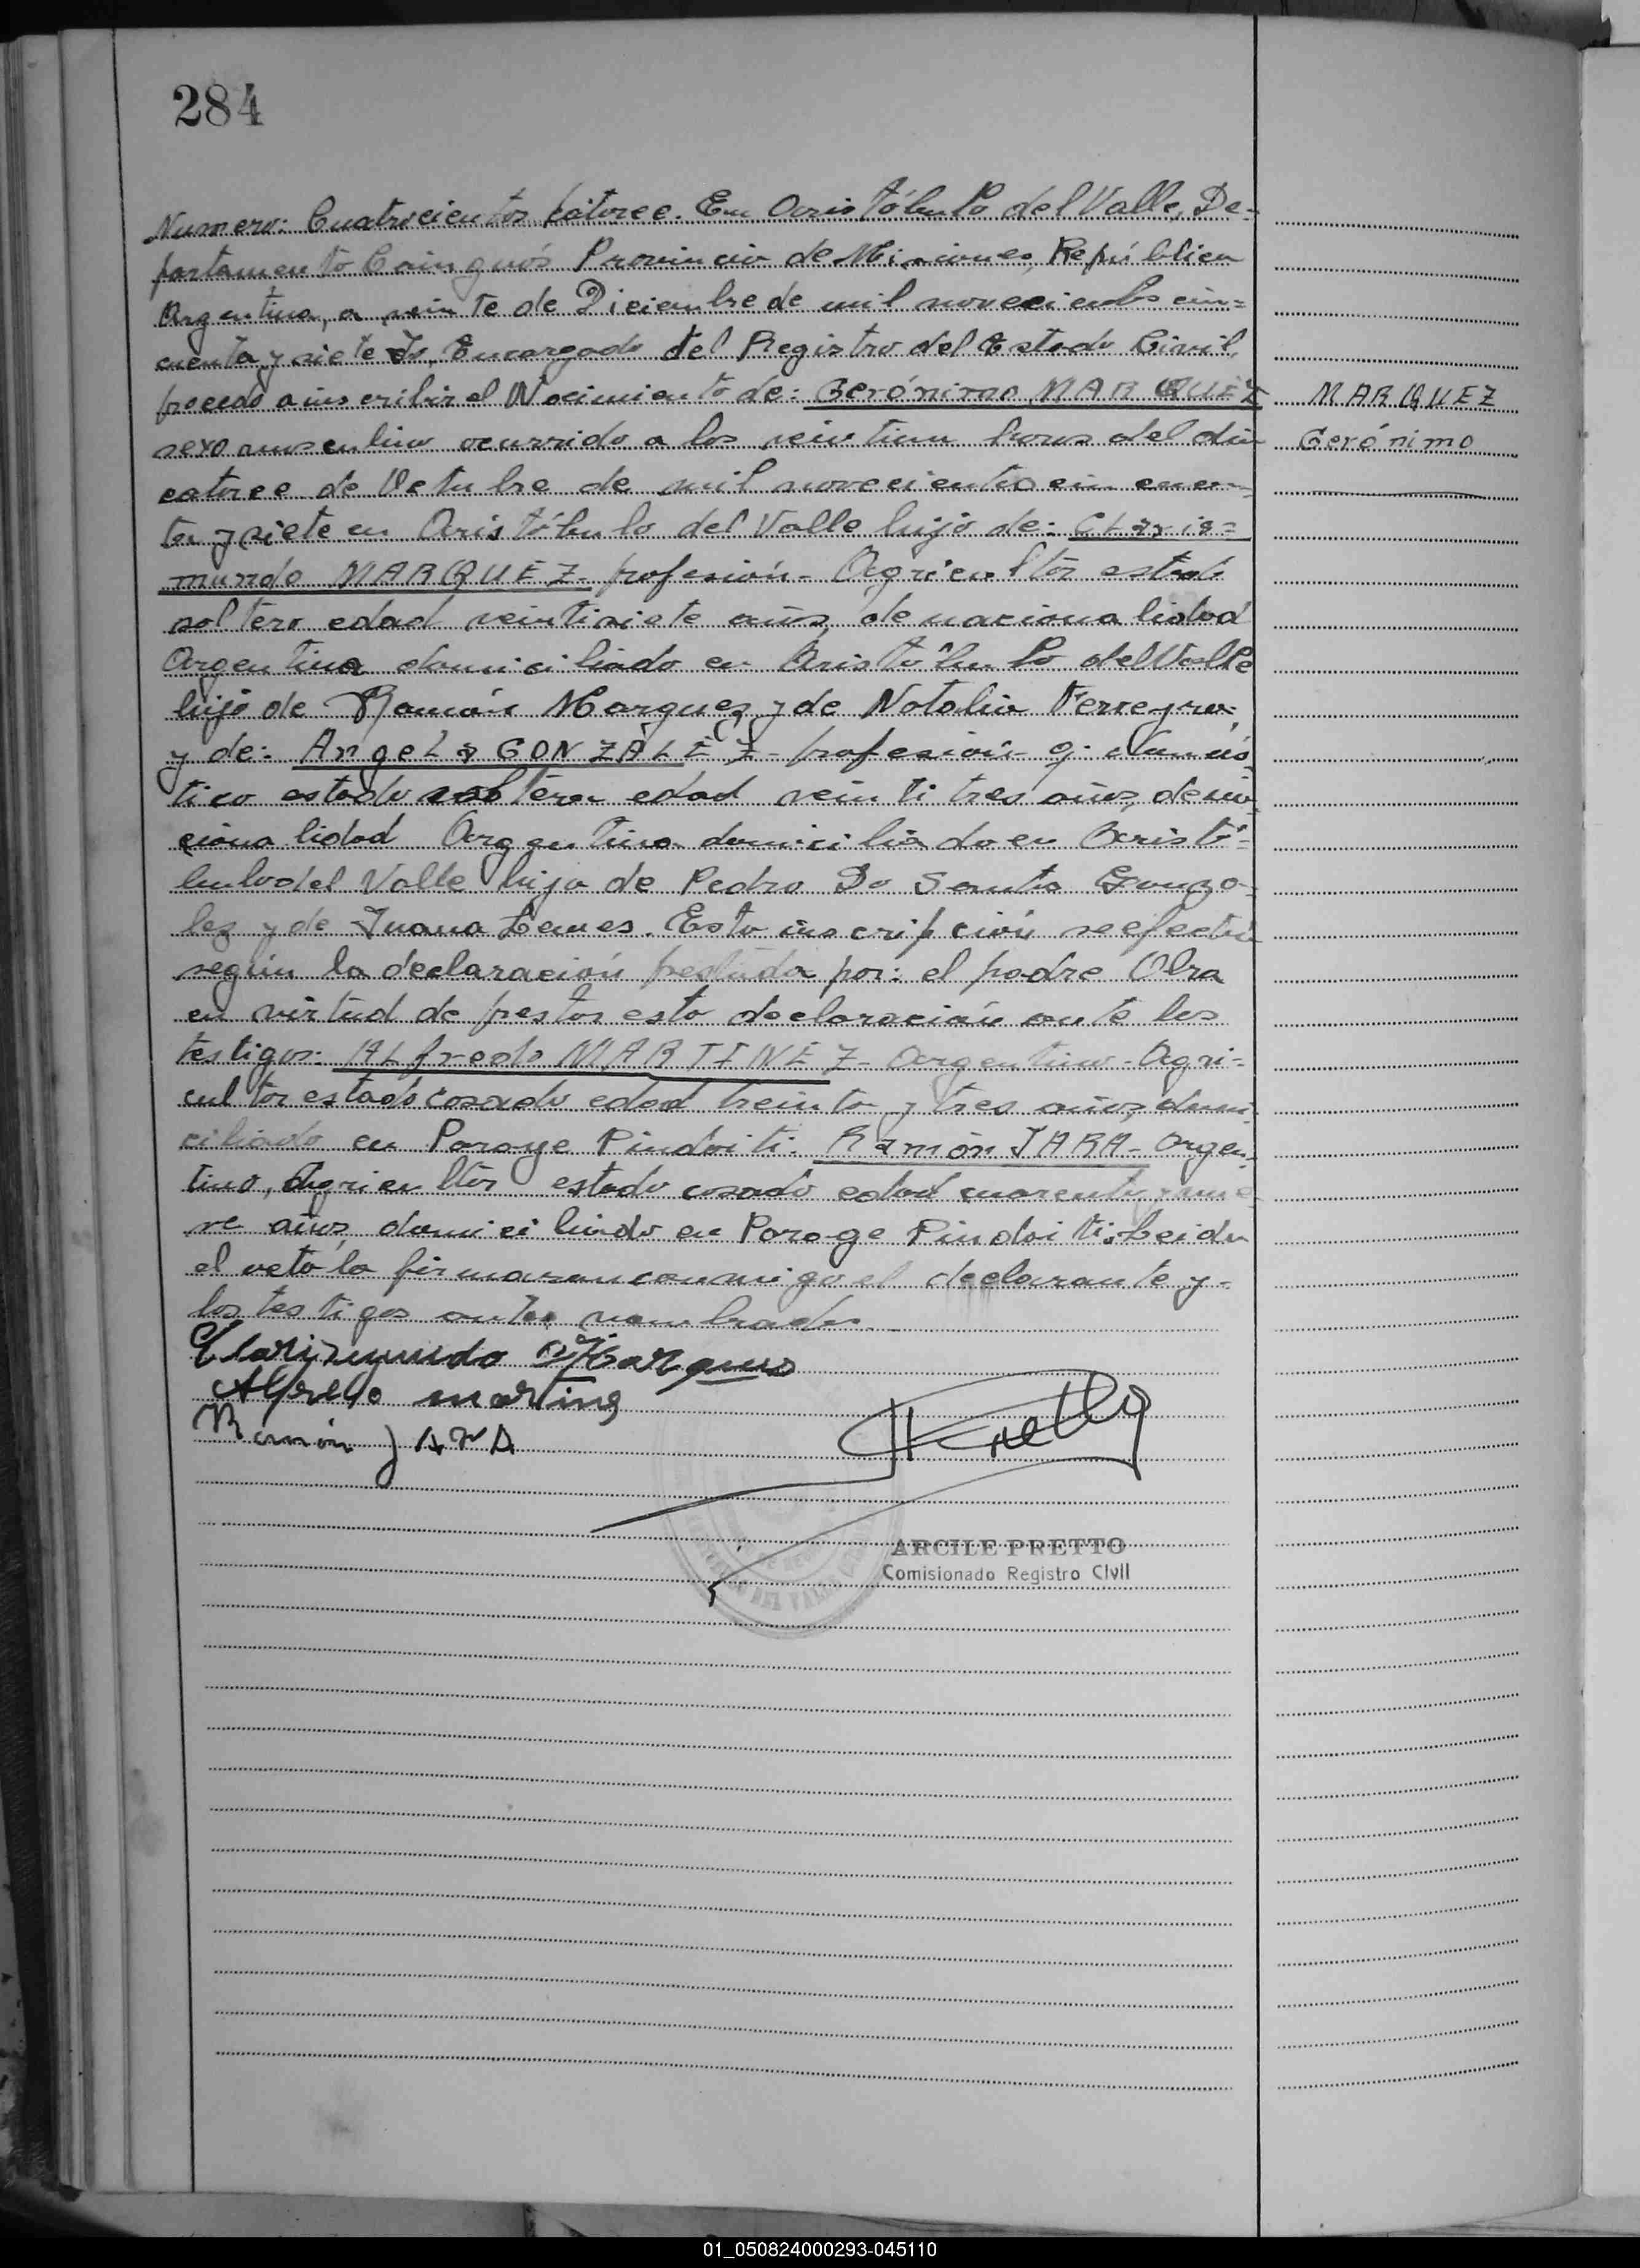 284
Numero: Cuatrocientos catorce. En Aristóbulo del Valle, De-
partamento Cainguás Provincia de Misiones, República
Argentina, a veinte de Diciembre de mil novecientos cin=
cuenta y siete Yo, Encargado del Registro del Estado Civil,
procedo a inscribir el Nacimiento de: Gerónimo MARQUEZ
MARQUEZ
sexo masculino ocurrido a las veintiun horas del dia
Gerónimo
catorce de Octubre de mil novecientos cincuen-
ta y siete en Aristóbulo del Valle hijo de: CLaris=
mundo MARQUEZ- profesión- Agricultor estado
soltero edad veintisiete años, de nacionalidad
Argentina domiciliado en Aristóbulo del Valle
hijo de Ramón Marquez y de Natalia Ferreyra,
y de: AngeLa GONZALEZ- profesión- q. domés
tico estado soltera edad veintitres años, de na
cionalidad Argentina domiciliado en Aristó=
bulo del Valle hija de Pedro Do Santo Gonza-
lez y de Juana Lemes. Esta inscripción se efectúa
según la declaración prestada por: el padre Obra
en virtud de prestar esta declaración ante los
testigos: ALfredo MARTINEZ- Argentino- Agri=
cultor estado casado edad treinta y tres años, domi
ciliado en Paraje Pindoiti. Ramón JARA- Argen-
tino, Agricultor estado casado edad cuarenta y nue
ve años, domiciliado en Paraje Pindoiti. Leida
el acta la firmaron conmigo el declarante y-
los testigos antes nombrados.
Clarizmundo Marques
Alfredo martinez
Ramón JARA
ARCILE PRETTO
Comisionado Registro Civil
DEL VALLE
01_050824000293-045110